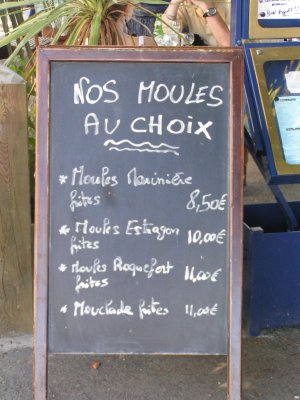 NOS MOULES
AU CHOIX
* Moules Marinière
frites 8,50€
* Moules Estragon
frites 10,00€
* Moules Roquefort
frites 11,00€
* Mouclade frites 11,00€